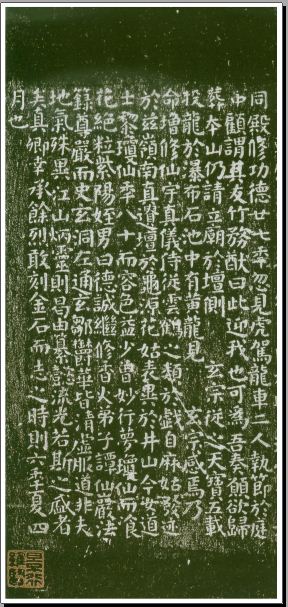 同殿修功德廿七年忽見虎駕龍車二人執節於庭
中顧謂其友竹務猷曰此迎我也可為吾奏願欲歸
葬本山仍請立廟於壇側 玄宗從之天寶五載
投龍於瀑布石池中有黃龍見 玄宗感焉乃
命增修仙宇真儀侍從雲鶴之類於戲自麻姑發迹
於茲嶺南真遺壇於龜源花姑表異於井山今女道
士黎瓊仙年八十而容色益少曾妙行夢瓊仙而飡
花絕粒紫陽姪男曰德誠繼修香火弟子譚仙巖法
籙尊嚴而史玄洞左通玄鄒鬱華皆清虛服道非夫
地氣殊異江山炳靈則曷由纂懿流光若斯之盛者
矣真卿幸承餘烈敢刻金石而志之時則六年夏四
月也